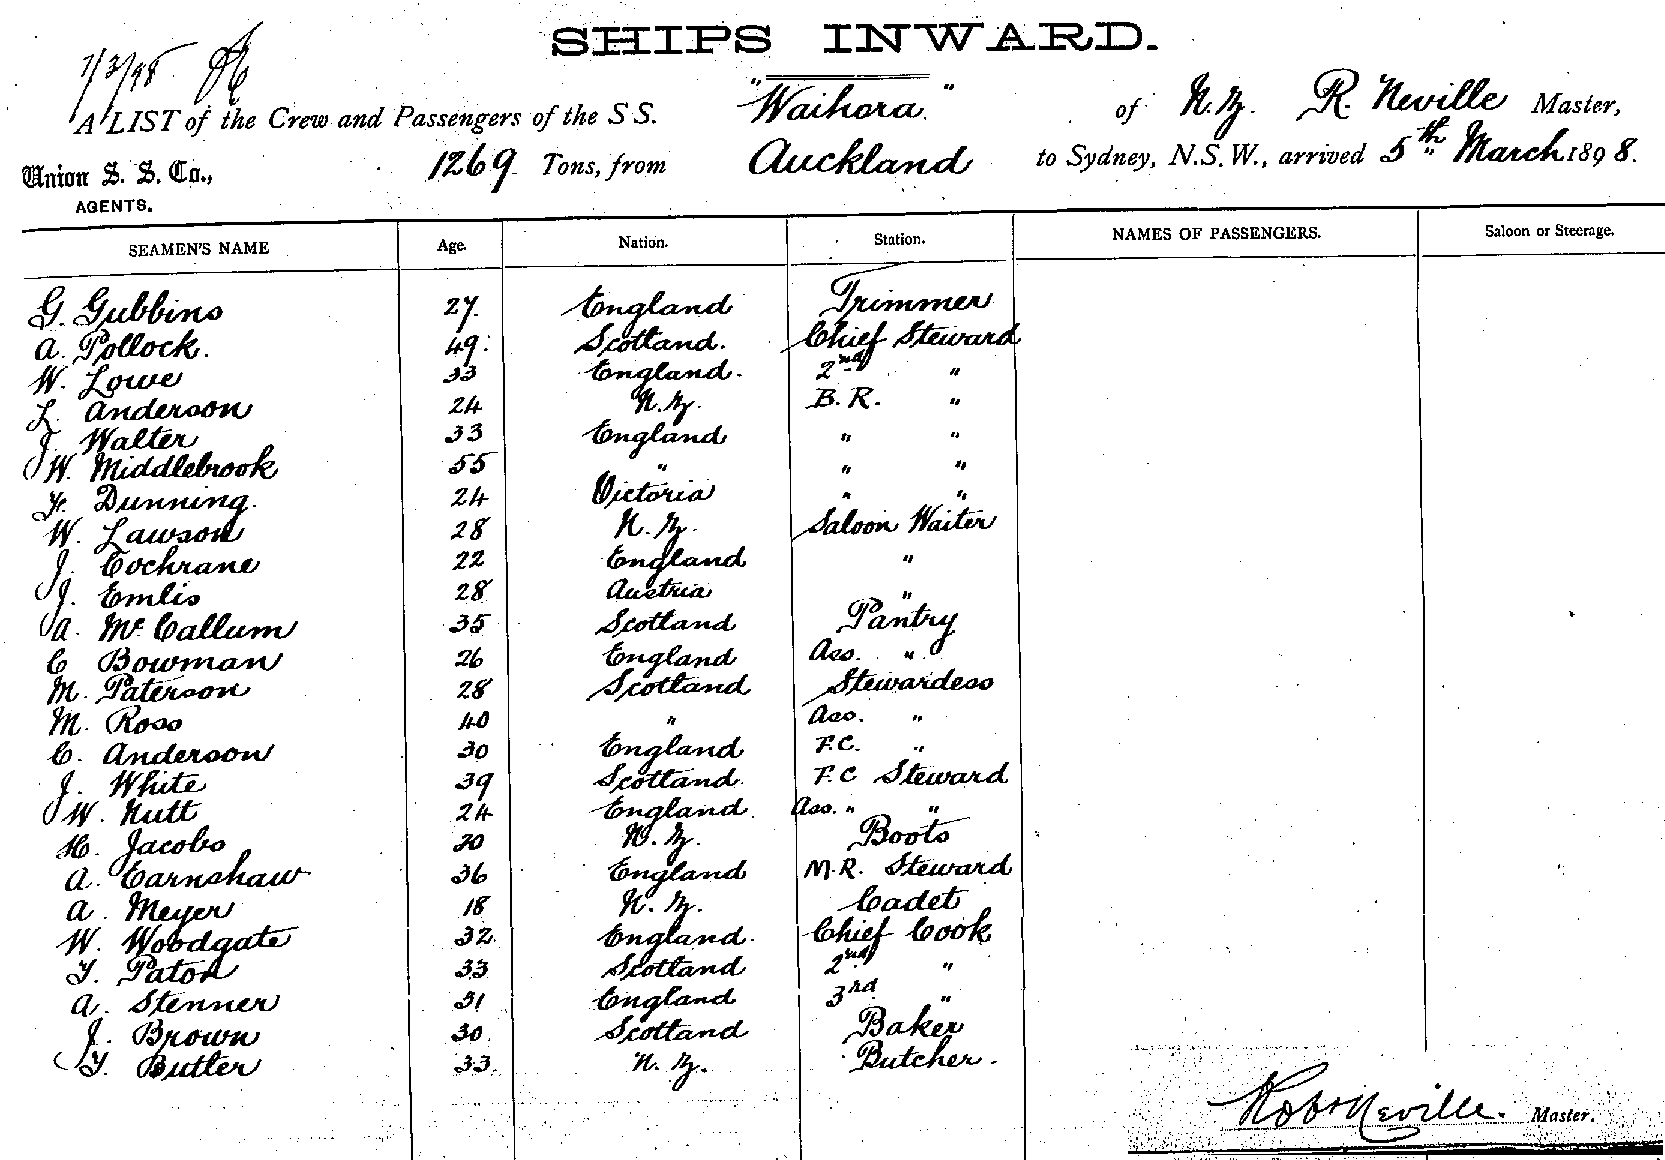 SHIPS INWARD.
7/3/98
A LIST of the Crew and Passengers of the S S. "Waihora" of N.Z. R. Neville Master,
Union S. S. Co., 1269 Tons, from Auckland to Sydney, N.S.W., arrived 5th March 1898.
AGENTS.
SEAMEN'S NAME Age. Nation. Station. NAMES OF PASSENGERS. Saloon or Steerage.
G. Gubbins 27. England Trimmer
A. Pollock. 49. Scotland. Chief Steward
W. Lowe 33 England. 2nd "
L. Anderson 24 N.Z. B.R. "
J. Walter 33 England " "
W. Middlebrook 55 " " "
F. Dunning. 24 Victoria " "
W. Lawson 28 N.Z. Saloon Waiter
J. Cochrane 22 England "
J. Emlis 28 Austria "
A. McCallum 35 Scotland Pantry
C Bowman 26 England Ass. "
M. Paterson 28 Scotland Stewardess
M. Ross 40 " Ass. "
C. Anderson 30 England F.C. "
J. White 39 Scotland F.C Steward
W. Nutt 24 England. Ass. " "
H. Jacobs 30 N.Z. Boots
A. Earnshaw 36 England M.R. Steward
A. Meyer 18 N.Z. Cadet
W. Woodgate 32 England. Chief Cook
T. Paton 33 Scotland 2nd "
A. Stenner 31 England 3rd "
J. Brown 30 Scotland Baker
T. Butler 33 N.Z. Butcher.
Robt Neville. Master.